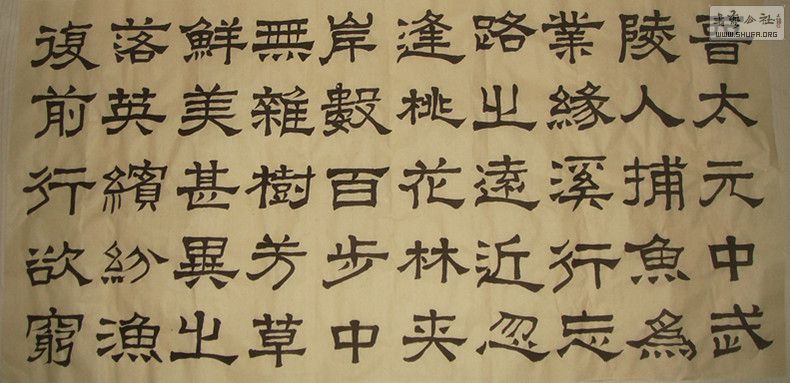 晉太元中武
陵人捕魚為
業緣溪行忘
路之遠近忽
逢桃花林夾
岸數百步中
無雜樹芳草
鮮美甚異之
落英繽紛漁
復前行欲窮
书艺公社
WWW.SHUFA.ORG